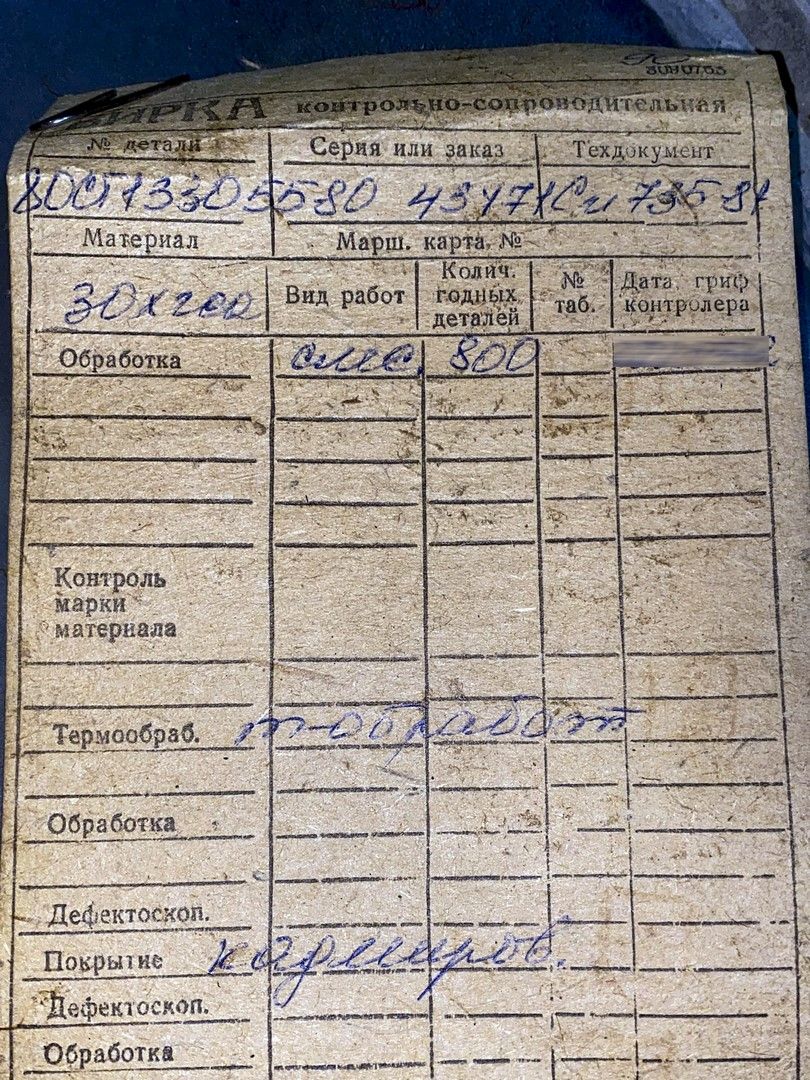 БИРКА контрольно-сопроводительная
№ детали Серия или заказ Техдокумент
Материал Марш. карта №
30хгса Вид работ Колич. годных деталей № таб. Дата, гриф контролера
Обработка слес. 800
Контроль
марки
материала
Термообраб. т-обработ
Обработка
Дефектоскоп.
Покрытие кадмиров.
Дефектоскоп.
Обработка